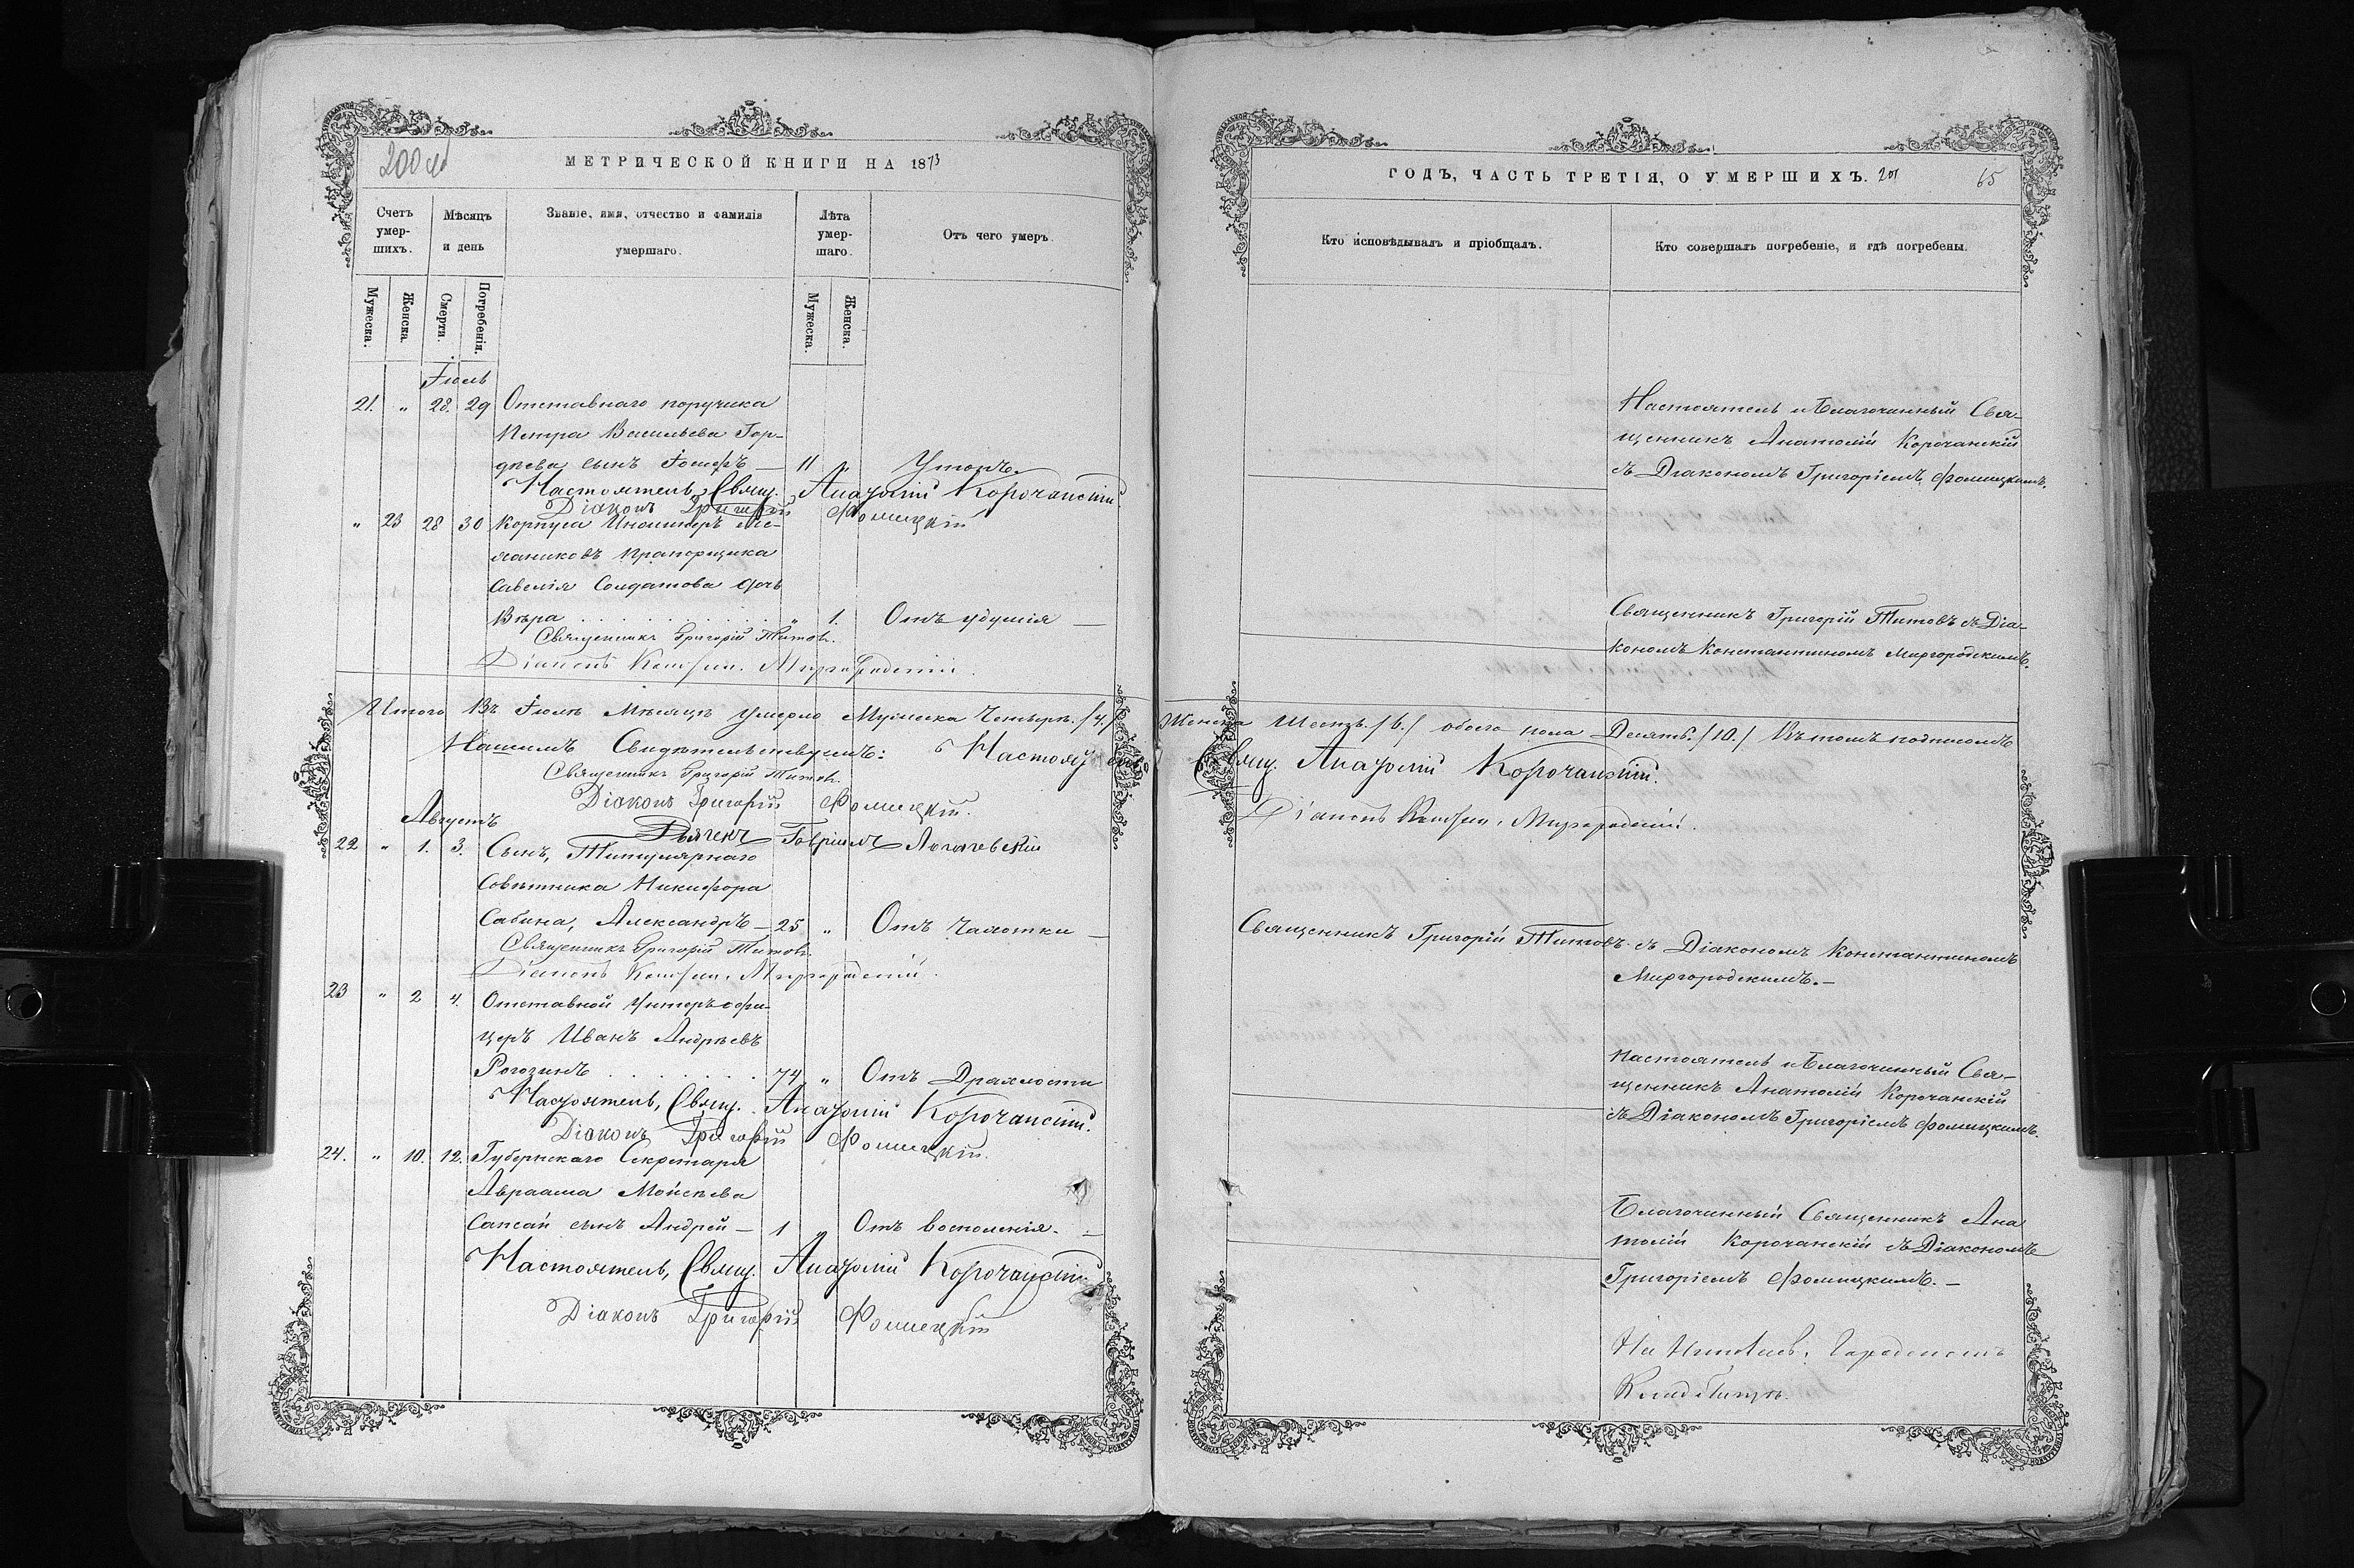 200 об
МЕТРИЧЕСКОЙ КНИГИ НА 1873
Счетъ умер-шихъ.
Мѣсяцъ и день
Званіе, имя, отчество и фамилія умершаго.
Лѣта умер-шаго.
Отъ чего умеръ.
Мужеска.
Женска.
Смерти.
Погребенія.
Мужеска.
Женска.
Іюль
21. " 28. 29 Отставнаго поручика
Петра Васильева Гор-
дѣева сынъ Іосифъ — 11 " Утопъ.
Настоятель, Свящ. Анатолій Корочанскій.
Діаконъ Григорій Фомицкій
" 23 28 30 Корпуса Инженеръ Ме-
хаников​ъ Прапорщика
Савелія Солдатова дочь
Вѣра . . . " 1. Отъ удушія —
Священникъ Григорій Титовъ.
Діаконъ Констан. Миргородскій.
Итого Въ Іюлѣ Мѣсяцѣ умерло Мужеска Четыре. /4./
Нашимъ Свидѣтельствуемъ: Настоятель
Священникъ Григорій Титовъ.
Діаконъ Григорій Фомицкій.
Дьячекъ Гавріилъ
Августъ
22 " 1. 3. Сынъ, Титулярнаго
Совѣтника Никифора
Сабина, Александръ — 25 " Отъ Чахотки —
Священникъ Григорій Титовъ.
Діаконъ Констан. Миргородскій.
23 " 2 4. Отставной Унтеръ-офи-
церъ Иванъ Андрѣевъ
Рогозинъ . . . 74 " Отъ Драхлости
Настоятель, Свящ. Анатолій Корочанскій.
Діаконъ Григорій Фомицкій.
24. " 10. 12. Губернскаго Секретаря
Авраама Моисѣева
Сапсай сынъ Андрей — 1 " Отъ воспаленія. —
Настоятель, Свящ. Анатолій Корочанскій
Діаконъ Григорій Фомицкій
ГОДЪ, ЧАСТЬ ТРЕТІЯ, О УМЕРШИХЪ. 201
65
Кто исповѣдывалъ и пріобщалъ.
Кто совершалъ погребеніе, и гдѣ погребены.
Настоятель и Благочинный Свя-
щенникъ Анатолій Корочанскій
съ Діакономъ Григоріемъ Фомицкимъ.
Священникъ Григорій Титовъ съ Діа-
кономъ Константиномъ Миргородскимъ.
Женска Шесть. /6./ обоего пола Десять. /10./ Въ томъ подписомъ
Свящ. Анатолій Корочанскій.
Діаконъ Констан. Миргородскій.
Священникъ Григорій Титовъ съ Діакономъ Константиномъ
Миргородскимъ. —
Настоятель и Благочинный Свя-
щенникъ Анатолій Корочанскій
съ Діакономъ Григоріемъ Фомицкимъ.
Благочинный Священникъ Ана
толій Корочанскій съ Діакономъ
Григоріемъ Фомицкимъ. —
На Николаев. Городскомъ
Кладбищѣ.